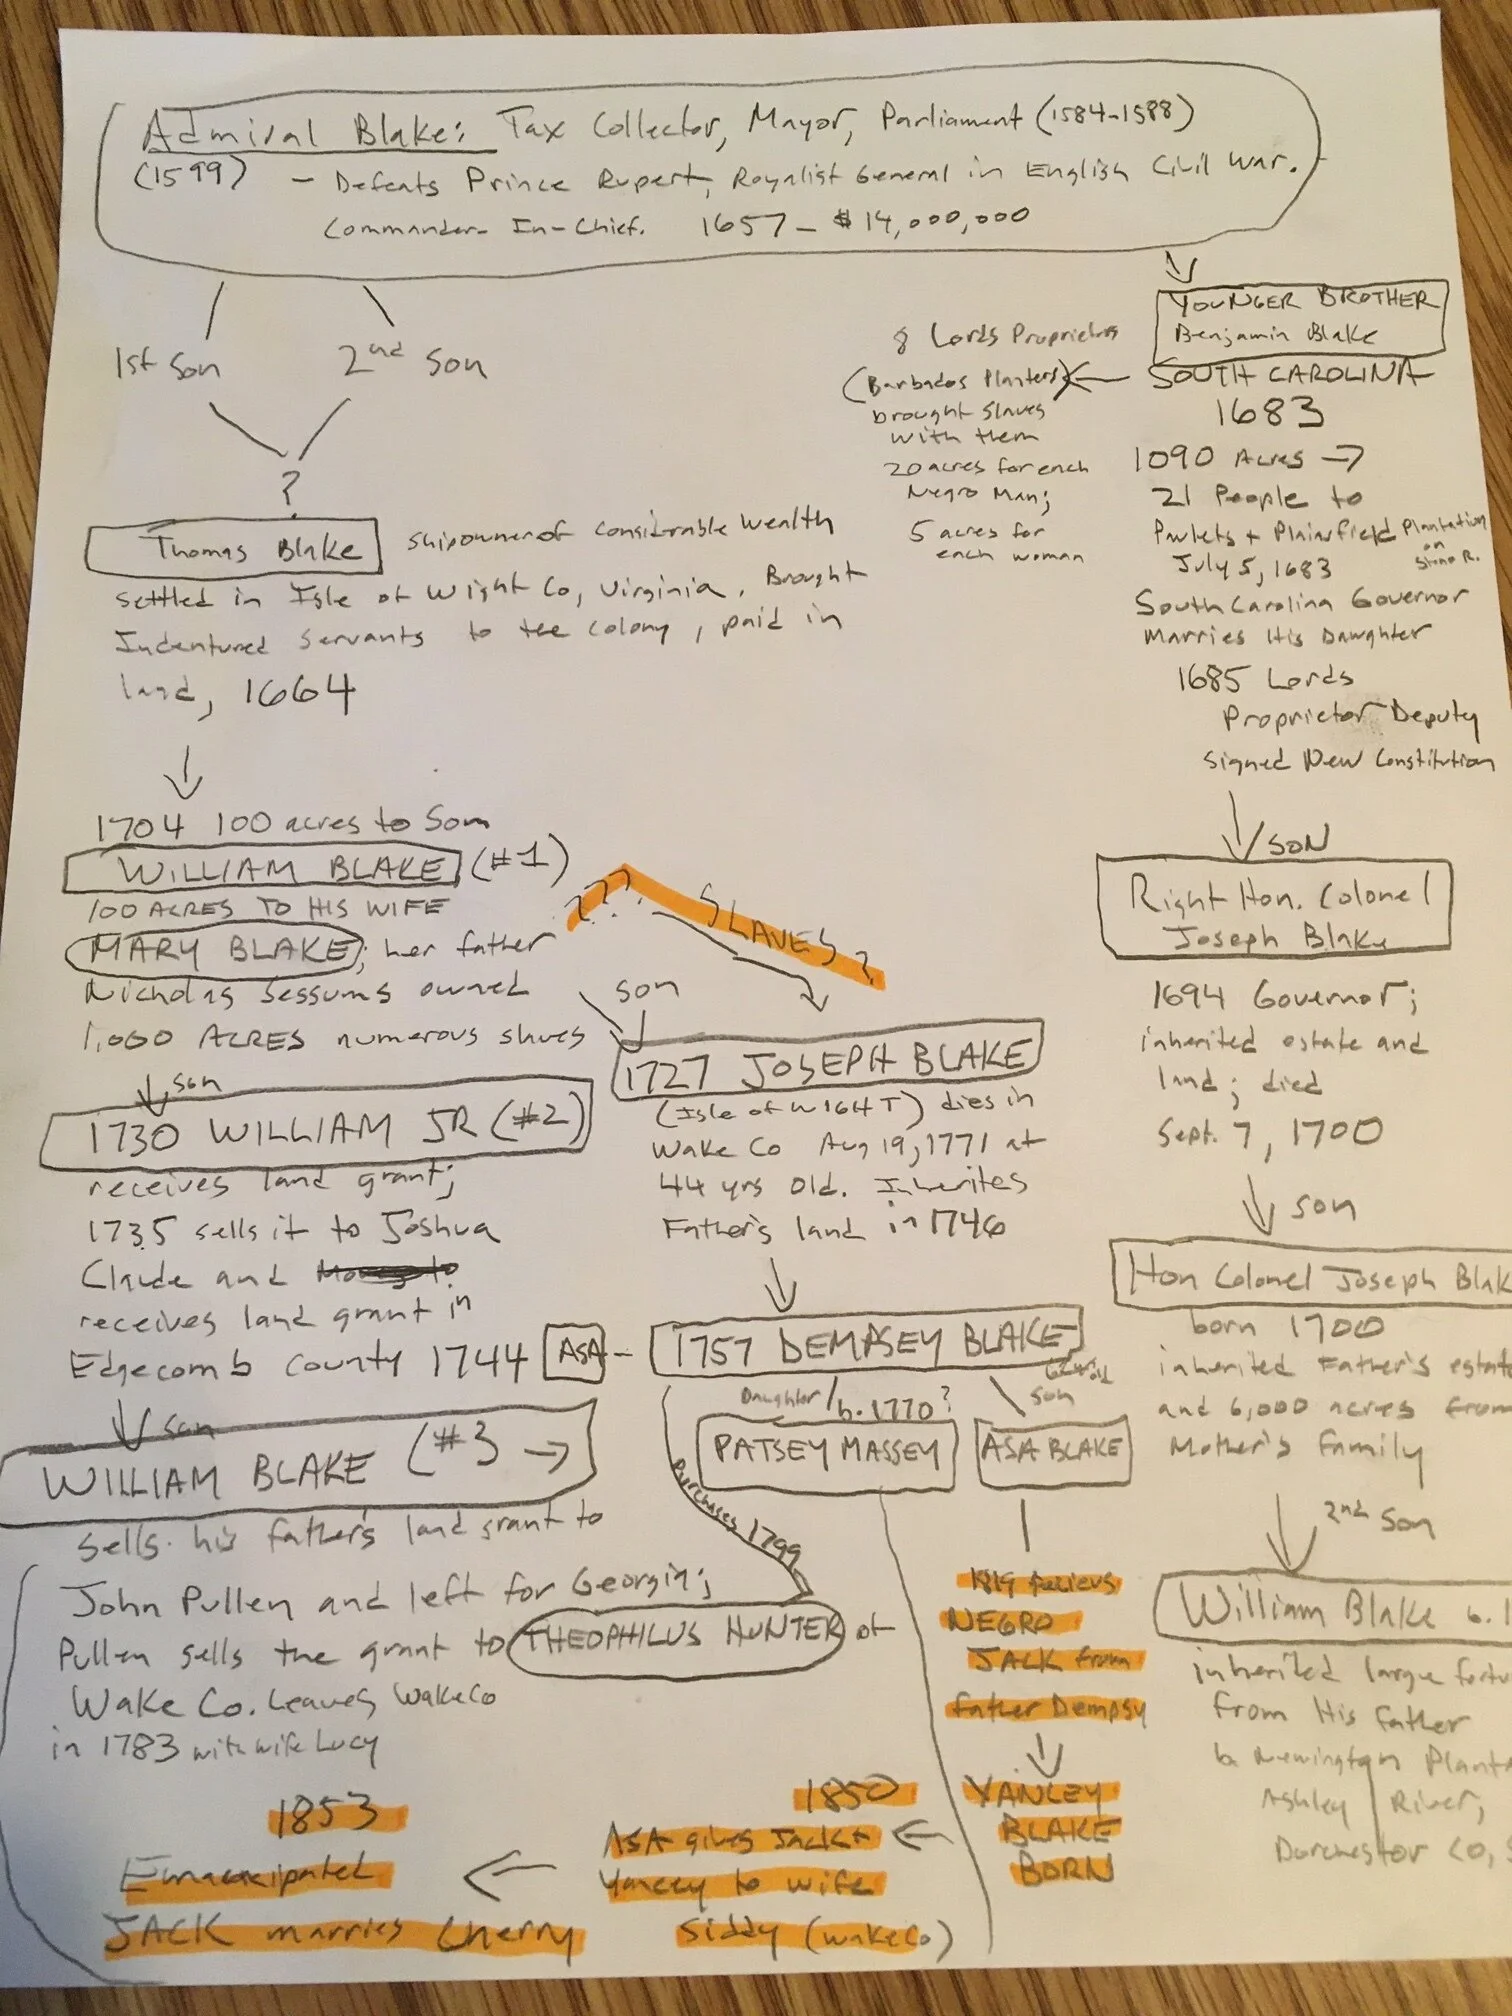 Admiral Blake: Tax Collector, Mayor, Parliament (1584-1588)
(1599) - Defeats Prince Rupert, Royalist General in English Civil War.
Commander-In-Chief. 1657 - $14,000,000
1st Son
2nd Son
?
Thomas Blake shipowner of considerable wealth
settled in Isle of Wight Co, Virginia. Brought
Indentured servants to the colony, paid in
land, 1664
1704 100 acres to Son
WILLIAM BLAKE (#1)
100 ACRES TO HIS WIFE
MARY BLAKE; her father
Nicholas Sessums owned
1,000 ACRES numerous slaves
son
1730 WILLIAM JR (#2)
receives land grant;
1735 sells it to Joshua
Claude and
receives land grant in
Edgecomb County 1744
son
WILLIAM BLAKE (#3 →
sells his father's land grant to
John Pullen and left for Georgia;
Pullen sells the grant to THEOPHILUS HUNTER of
Wake Co. Leaves Wake Co
in 1783 with wife Lucy
??? SLAVES?
son
1727 JOSEPH BLAKE
(Isle of WIGHT) dies in
Wake Co Aug 19, 1771 at
44 yrs old. Inherites
Father's land in 1746
ASA - 1757 DEMPSEY BLAKE
Daughter b. 1770?
son
PATSEY MASSEY
ASA BLAKE
Purchases 1799
1819 recieves
NEGRO
JACK from
father Dempsy
YANCEY
BLAKE
BORN
1850
ASA gives Jack +
Yancey to wife
Siddy (WakeCo)
1853
Emancipated
JACK marries Cherry
YOUNGER BROTHER
Benjamin Blake
SOUTH CAROLINA
1683
8 Lords Proprietors
(Barbados Planters)
brought slaves
with them
20 acres for each
Negro Man;
5 acres for
each woman
1090 Acres →
21 People to
Pawlets + Plainsfield Plantation
on
Stono R.
July 5, 1683
South Carolina Governor
Marries His Dawghter
1685 Lords
Proprietor Deputy
signed New Constitution
SON
Right Hon. Colonel
Joseph Blake
1694 Governor;
inherited estate and
land; died
Sept. 7, 1700
son
Hon Colonel Joseph Blak
born 1700
inherited Father's estate
and 6,000 acres from
Mother's Family
2nd Son
William Blake b. 1
inherited large fortu
from His Father
b. Newington Planta
Ashley River,
Dorchestor Co, S